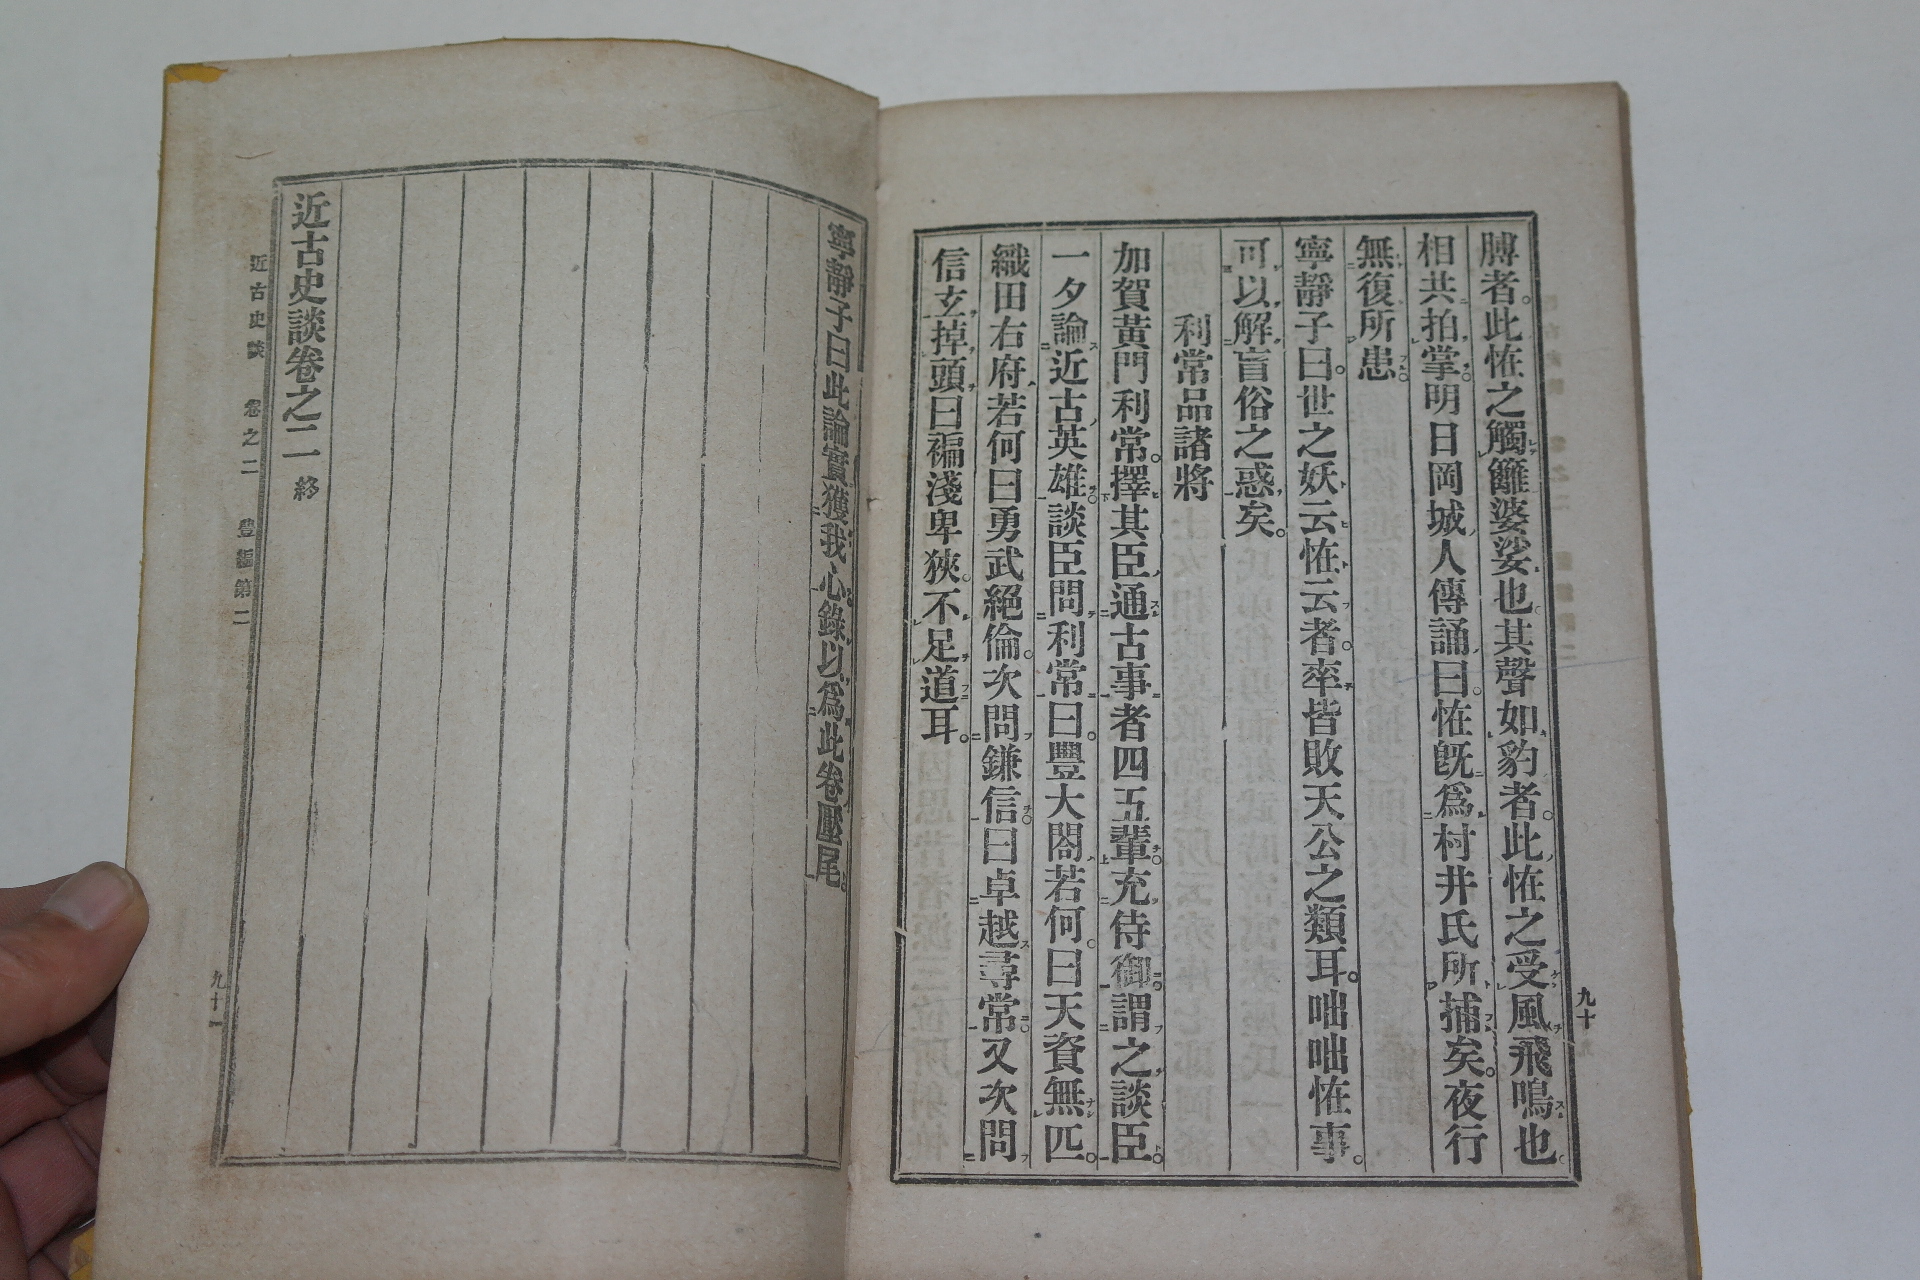 膊者。此恠之觸籬婆娑也其聲如豹者。此恠之受風飛鳴也
相共拍掌。明日岡城人傳誦曰。恠既爲村井氏所捕矣。夜行
無復所患。
寧靜子曰。世之妖云恠云者。率皆敗天公之類耳。咄咄恠事。
可以解盲俗之惑矣。
利常品諸將
加賀黃門利常。擇其臣通古事者四五輩。充侍御。謂之談臣。
一夕論近古英雄。談臣問利常曰。豐大閤若何。曰天資無匹。
織田右府若何曰勇武絕倫。次問鎌信。曰卓越尋常。又次問
信玄。掉頭曰褊淺卑狹。不足道耳。
九十
寧靜子曰此論實獲我心。錄以爲此卷壓尾。
近古史談卷之二 終
近古史談 卷之二 豊編第二
九十一